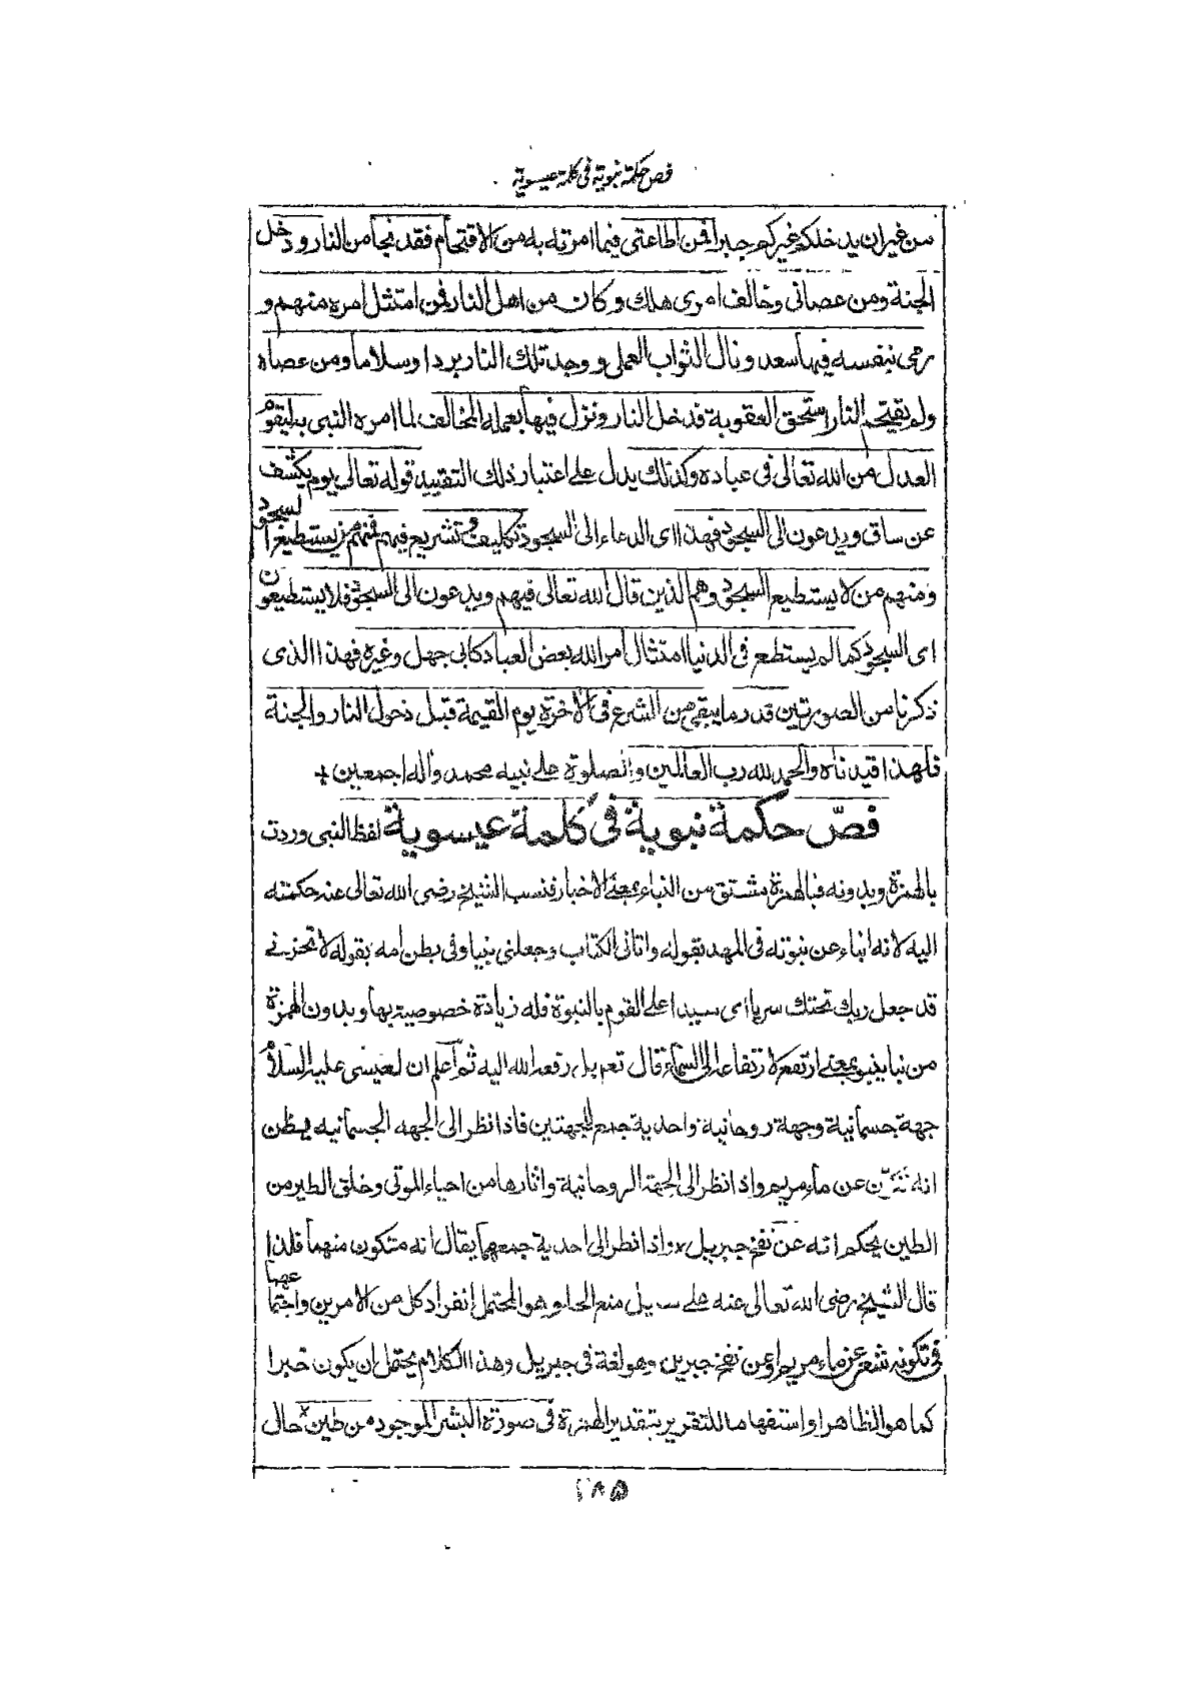 فص حكمة نبوية فى كلمة عيسوية
من غير ان يدخلكم غيركم جبرا فمن اطاعنى فيما امرته به من الاقتحام فقد نجا من النار ودخل
الجنة ومن عصانى وخالف امرى هلك وكان من اهل النار فمن امتثل امره منهم و
رمى بنفسه فيها سعد ونال الثواب العملى ووجد تلك النار بردا وسلاما ومن عصاه
ولم يقتحم النار استحق العقوبة فدخل النار ونزل فيها بعمله المخالف لما امره النبى به ليقوم
العدل من الله تعالى فى عباده وكذلك يدل على اعتبار ذلك التقييد قوله تعالى يوم يكشف
عن ساق ويدعون الى السجود فهذا اى الدعاء الى السجود تكليف وتشريع فيهم فمنهم من يستطيع السجود
ومنهم من لا يستطيع السجود وهم الذين قال الله تعالى فيهم ويدعون الى السجود فلا يستطيعون
اى السجود كما لم يستطع فى الدنيا امتثال امر الله بعض العباد كابى جهل وغيره فهذا الذى
ذكرنا من الصورتين قدر ما يبقى من الشرع فى الاخرة يوم القيمة قبل دخول النار والجنة
فلهذا قيدناه والحمد لله رب العالمين والصلوة على نبيه محمد واله اجمعين +
فصّ حكمة نبوية فى كلمة عيسوية لفظ النبى وردت
بالهمزة وبدونه فبالهمزة مشتق من النباء بمعنى الاخبار فنسب الشيخ رضى الله تعالى عنه حكمته
اليه لانه انباء عن نبوته فى المهد بقوله واتانى الكتاب وجعلنى نبيا وفى بطن امه بقوله لا تحزنى
قد جعل ربك تحتك سريا اى سيدا على القوم بالنبوة فله زيادة خصوصية بها وبدون الهمزة
من نبا ينبو بمعنى ارتفع لارتفاعه الى السماء قال تعم بل رفعه الله اليه ثم اعلم ان لعيسى عليه السلام
جهة جسمانية وجهة روحانية واحدية جمع للجهتين فاذا نظر الى الجهه الجسمانيه يظن
انه تكوّن عن ماء مريم واذا نظر الى الجهة الروحانية واثارها من احياء الموتى وخلق الطير من
الطين يحكم انه عن نفخ جبريل واذا نظر الى احدية جمعهما يقال انه متكون منهما فلذا
قال الشيخ رضى الله تعالى عنه على سبيل منع الخلو هو المحتمل انفراد كل من الامرين واجتماعهما
فى تكونه شعر عن ماء مريم او عن نفخ جبرين وهو لغة فى جبريل وهذا الكلام يحتمل ان يكون خبرا
كما هو الظاهر او استفهاما للتقرير بتقدير الهمزة فى صورة البشر الموجود من طين حال
٢٨٥